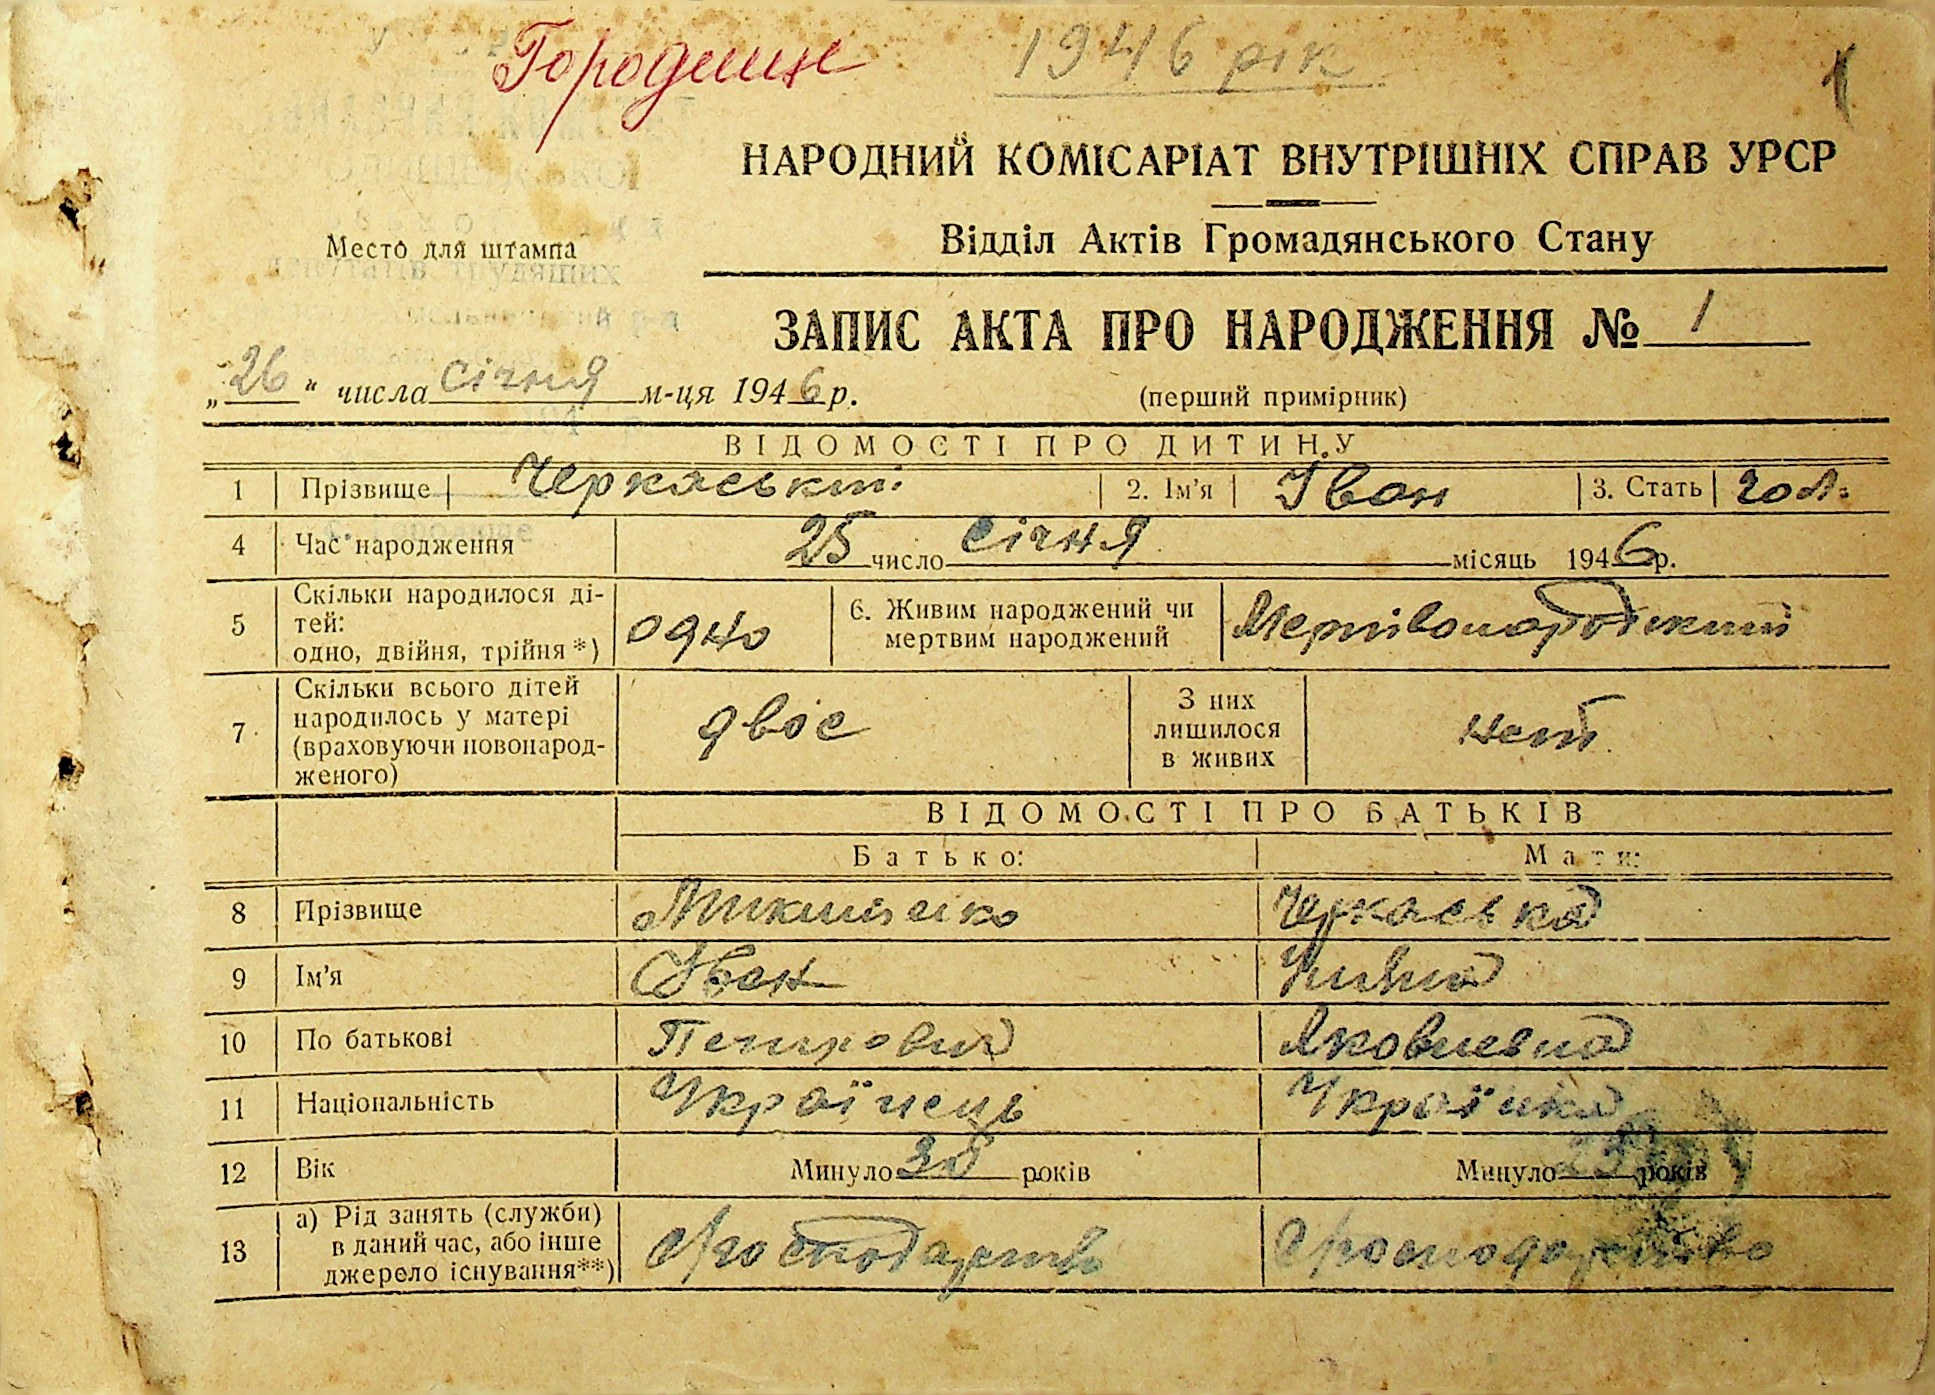 Городище
1946 рік
1
НАРОДНИЙ КОМІСАРІАТ ВНУТРІШНІХ СПРАВ УРСР
Відділ Актів Громадянського Стану
Место для штампа
депутатів трудящих
ЗАПИС АКТА ПРО НАРОДЖЕННЯ № 1
„26“ числа січня м-ця 1946 р.
(перший примірник)
ВІДОМОСТІ ПРО ДИТИНУ
1 Прізвище Черкаський 2. Ім'я Іван 3. Стать чол.
4 Час народження 25 число січня місяць 1946 р.
5 Скільки народилося ді-
тей:
одно, двійня, трійня *) одно
6. Живим народжений чи
мертвим народжений
7 Скільки всього дітей
народилось у матері
(враховуючи новонарод-
женого) двоє
З них
лишилося
в живих нет
ВІДОМОСТІ ПРО БАТЬКІВ
Батько: Мати:
8 Прізвище Микитенко Черкаська
9 Ім'я Іван
10 По батькові Петрович Яковлевна
11 Національність Українець Українка
12 Вік Минуло років Минуло 23 років
13 а) Рід занять (служби)
в даний час, або інше
джерело існування**)